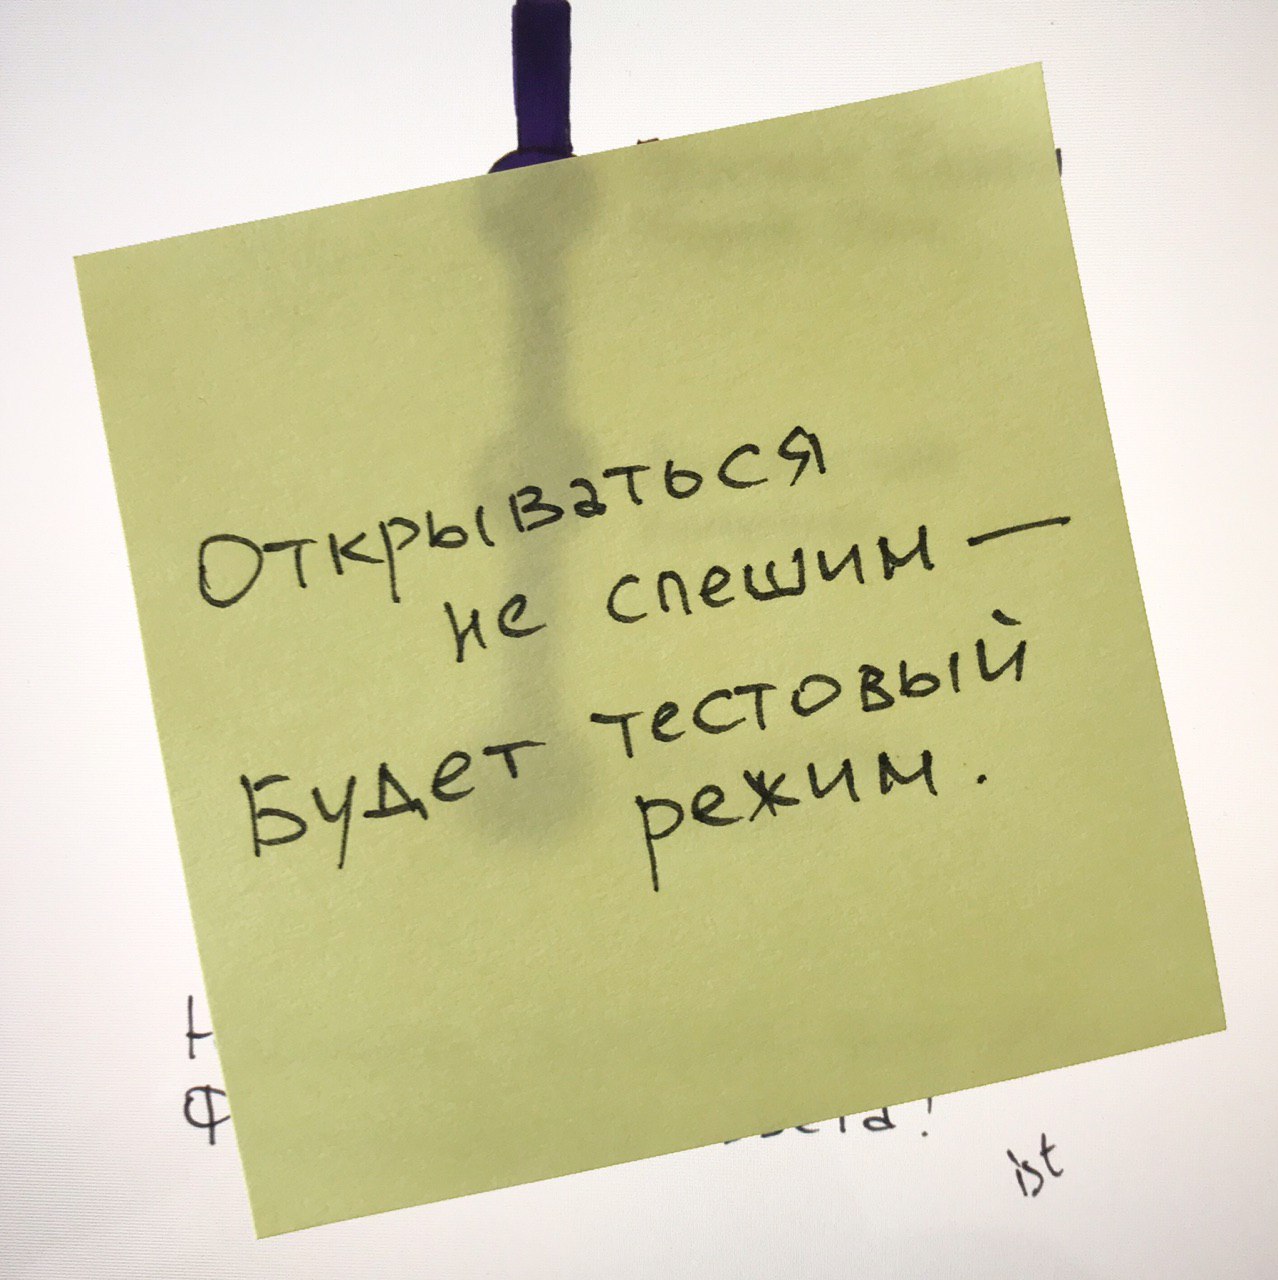 Открываться
не спешим —
Будет тестовый
режим.
ist